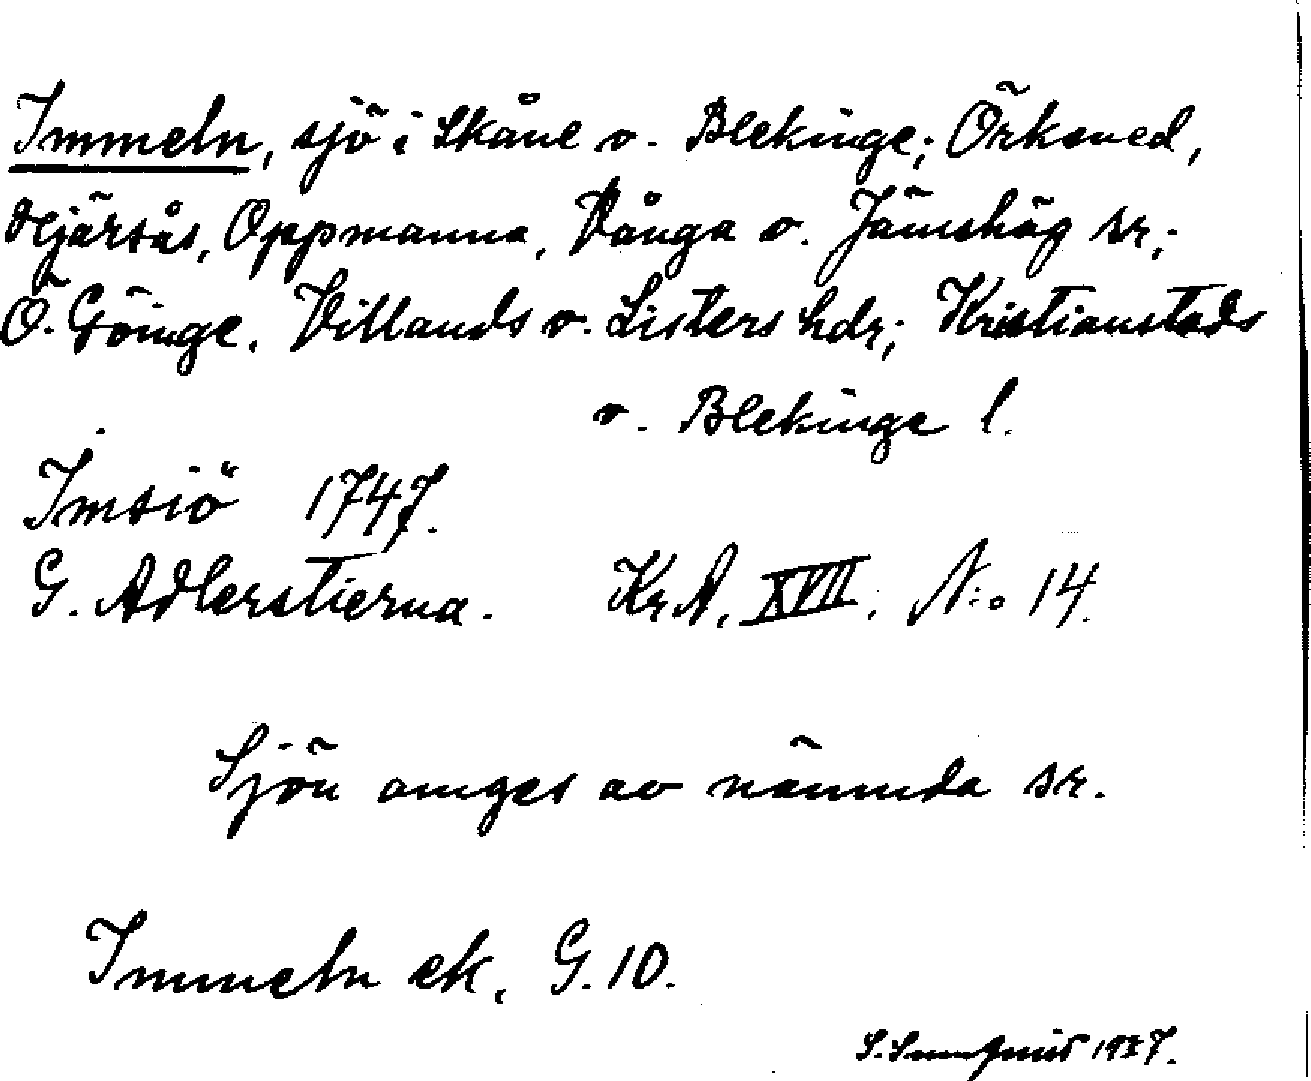 Immeln, sjö i Skåne o. Blekinge; Örkened,
Hjärsås, Oppmanna, Vånga o. Jämshög sr;
Ö. Göinge, Villands o. Listers hdr; Kristianstads
o. Blekinge l.
Imsiö 1747.
G. Adlerstierna. Kr A. XVII. N:o 14.
Sjön omges av nämnda sr.
Immeln ek. G. 10.
S. 1937.